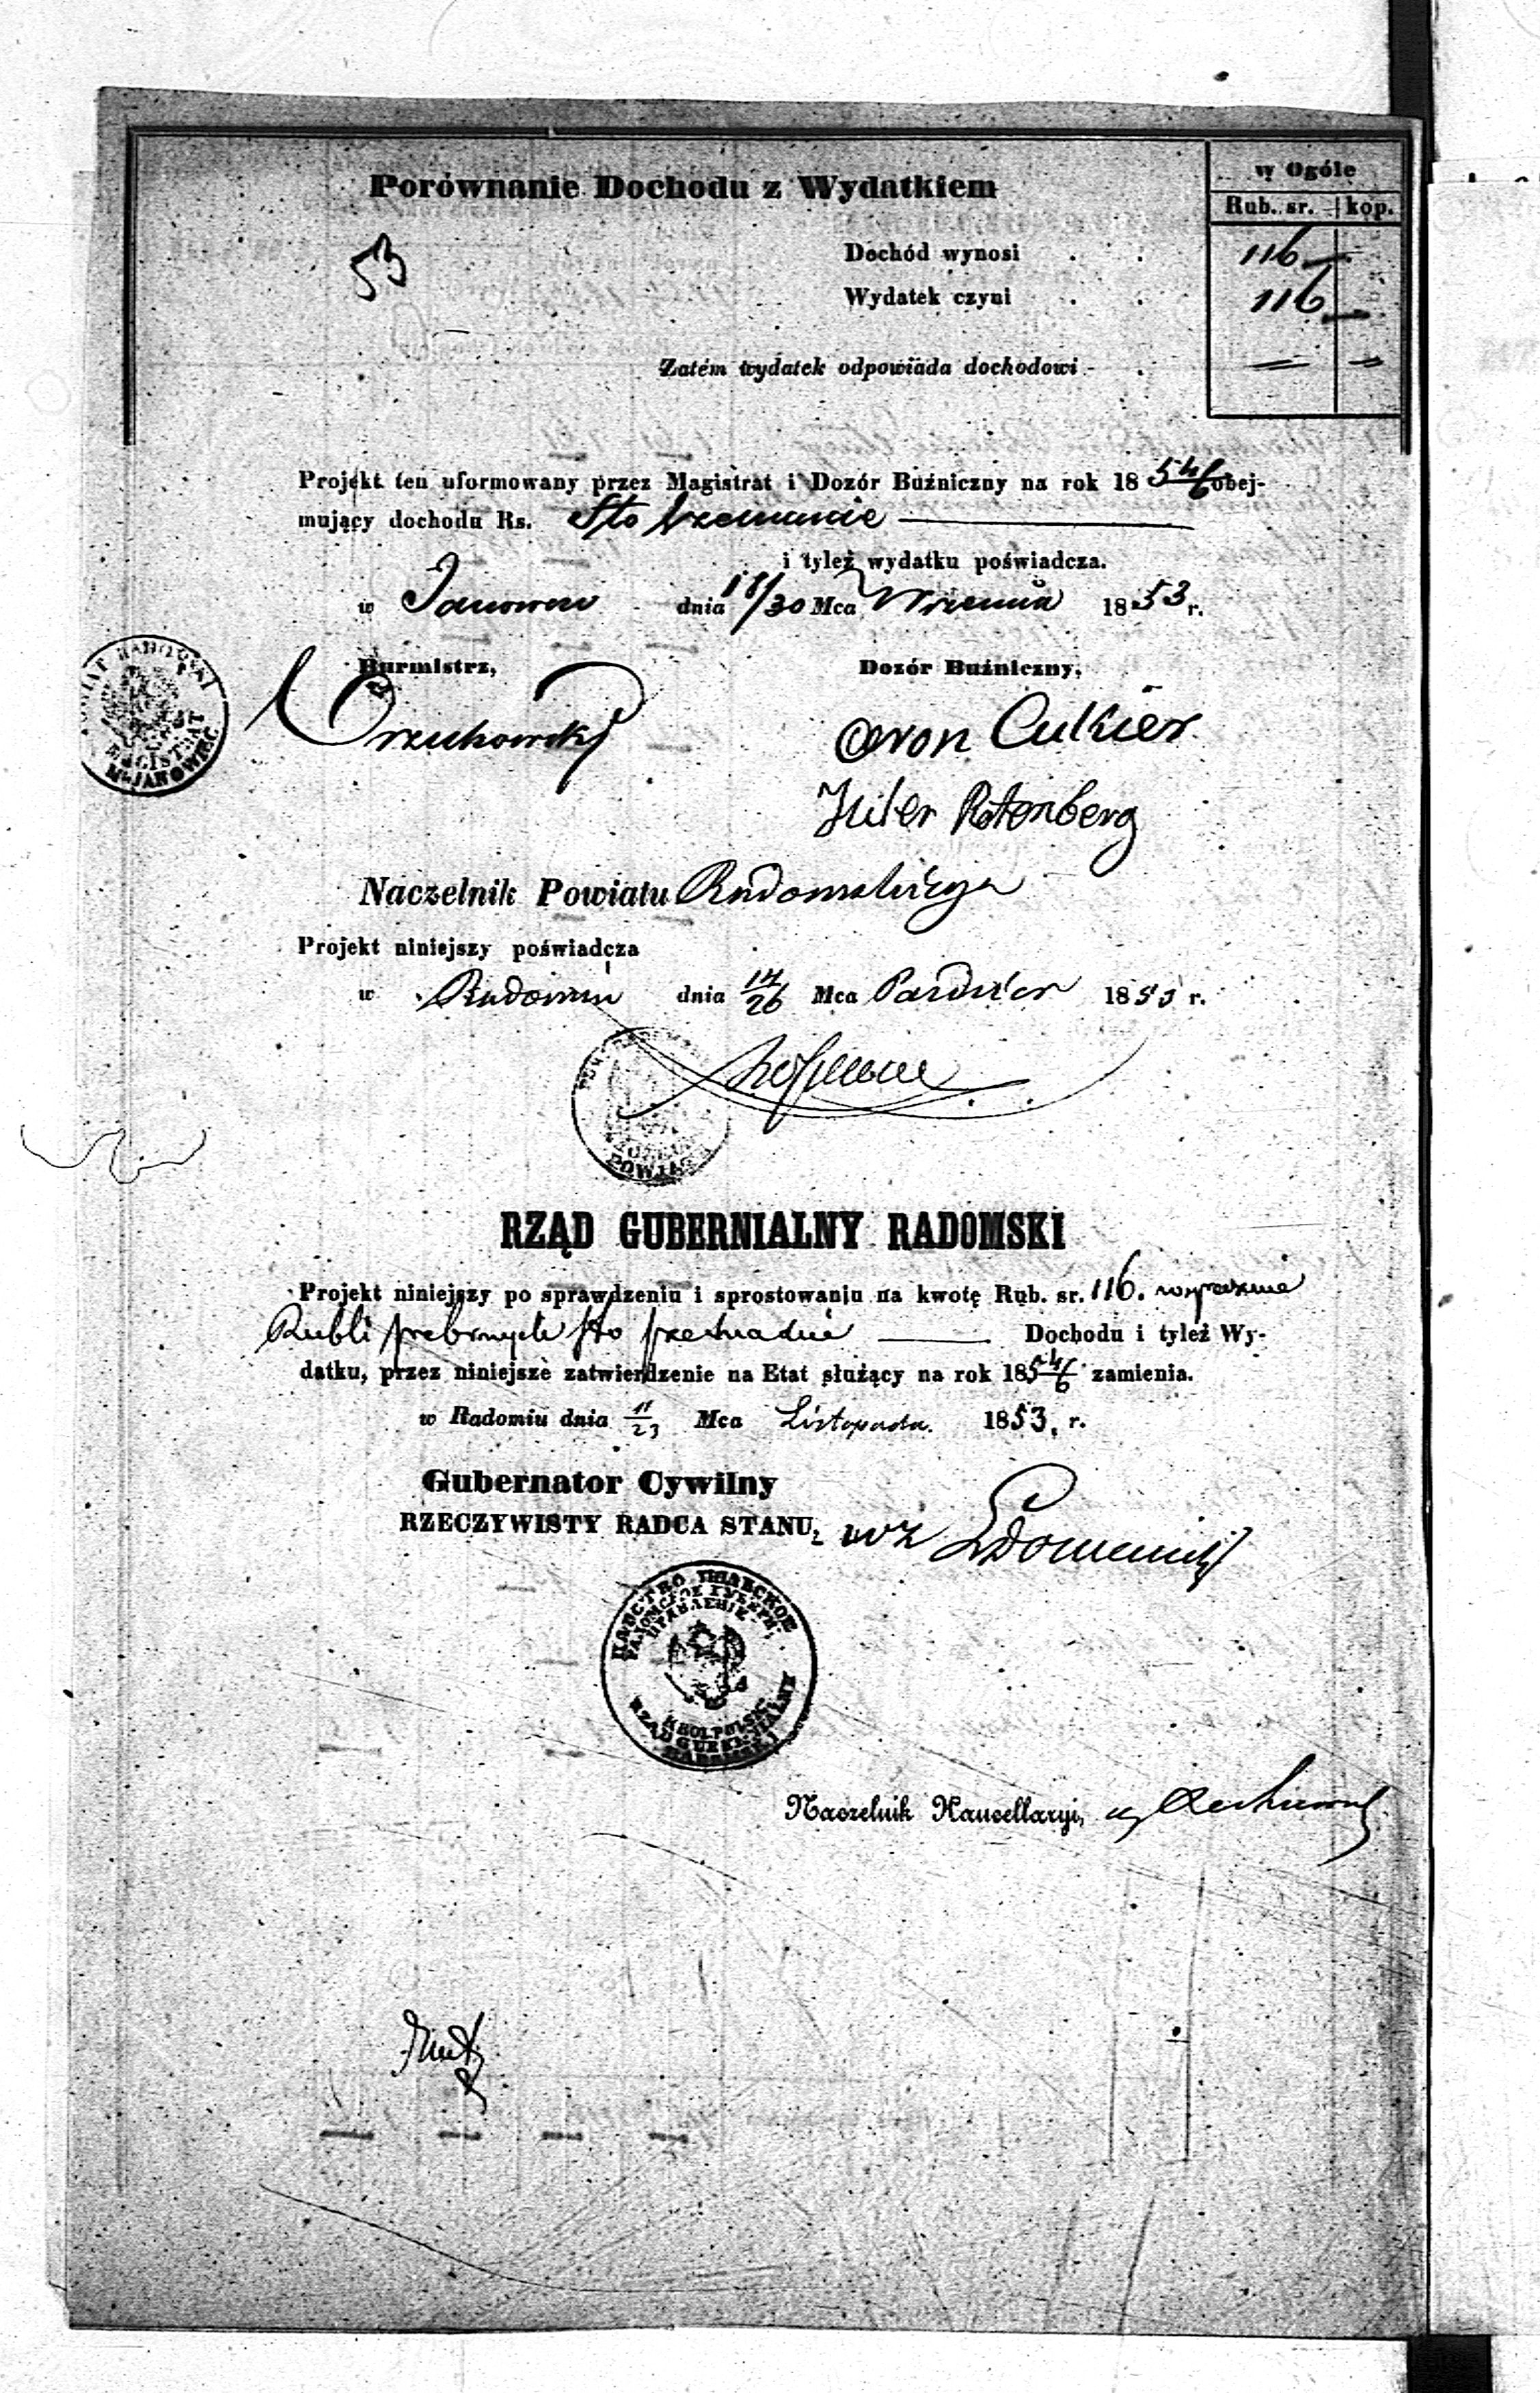 w Ogóle
Porównanie Dochodu z Wydatkiem
Rub. sr. kop.
53
Dochód wynosi . . 116 —
Wydatek czyni . . 116 —
Zatém wydatek odpowiada dochodowi - .
Projekt ten uformowany przez Magistrat i Dozór Bużniczny na rok 18 54/6 obej-
mujący dochodu Rs. Sto szesnaście
i tyleż wydatku poświadcza.
w Janowcu dnia 18/30 Mca Września 1853 r.
Burmistrz, Dozór Bużniczny,
Orzechowski
Cukier
Rotenberg
MAGISTRAT
M. JANOWIEC
Naczelnik Powiatu Radomskiego
Projekt niniejszy poświadcza
w Radomiu dnia 14/26 Mca Paździer 1853 r.
RZĄD GUBERNIALNY RADOMSKI
Projekt niniejszy po sprawdzeniu i sprostowaniu na kwotę Rub. sr. 116. wyraźnie
Rubli srebrnych sto szesnaście Dochodu i tyleż Wy-
datku, przez niniejsze zatwierdzenie na Etat służący na rok 1854/6 zamienia.
w Radomiu dnia 11/23 Mca Listopada. 1853. r.
Gubernator Cywilny
RZECZYWISTY RADCA STANU,
KROL. POLSKI.
RZĄD GUBERNIALNY
RADOMSKI
Naczelnik Kancellaryi,